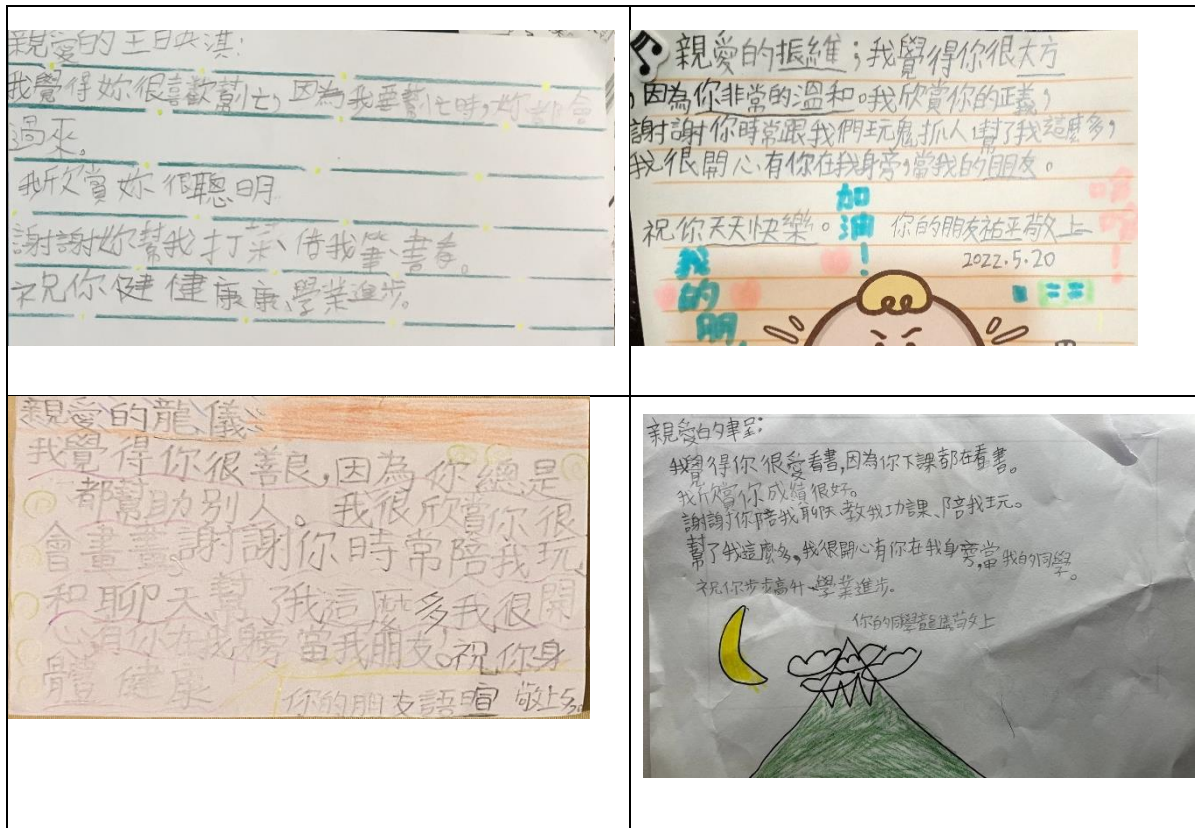 親愛的王映淇:
我覺得妳很喜歡幫忙,因為我要幫忙時,妳都會
過來。
我欣賞妳很聰明
謝謝妳幫我打菜、借我筆、書。
祝你健健康康、學業進步。
親愛的振維;我覺得你很大方
,因為你非常的溫和。我欣賞你的正義,
謝謝你時常跟我們玩鬼抓人,幫了我這麼多,
我很開心有你在我身旁,當我的朋友。
加油!
祝你天天快樂。 你的朋友祐平敬上
2022.5.20
我的朋
親愛的龍儀
我覺得你很善良,因為你總是
都幫助別人。我很欣賞你很
會畫畫。謝謝你時常陪我玩、
和聊天,幫了我這麼多我很開
心有你在我旁當我朋友。祝你身
體健康
你的朋友語瑄 敬上5/20
親愛的聿呈:
我覺得你很愛看書,因為你下課都在看書。
我欣賞你成績很好。
謝謝你陪我聊天、教我功課、陪我玩。
幫了我這麼多,我很開心有你在我身旁,當我的同學。
祝你步步高升、學業進步。
你的同學龍儀敬上